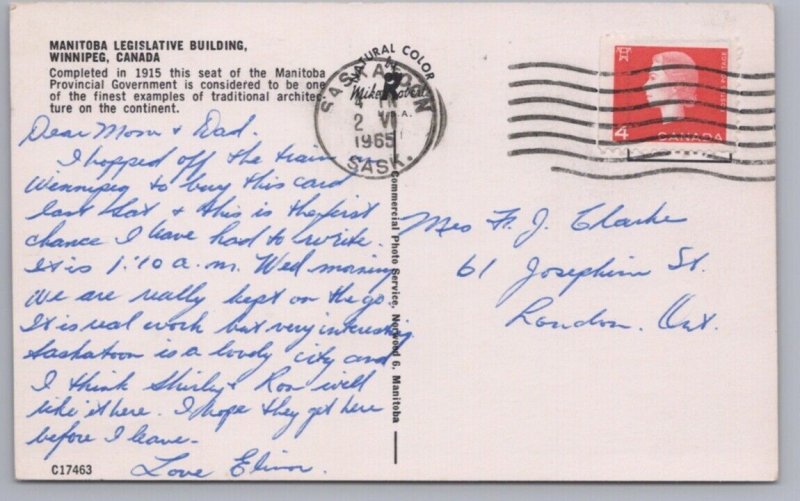 MANITOBA LEGISLATIVE BUILDING,
WINNIPEG, CANADA
Completed in 1915 this seat of the Manitoba
Provincial Government is considered to be one
of the finest examples of traditional architec-
ture on the continent.
Dear Mom & Dad.
I hopped off the train in
Winnipeg to buy this card
last Sat & this is the first
chance I have had to write.
It is 1:10 a.m. Wed morning
We are really kept on the go.
It is real work but very interesting
Saskatoon is a lovely city and
I think Shirley & Ron will
like it here. I hope they get here
before I leave.
Love Elinor.
C17463
NATURAL COLOR
Mike Roberts
U.S.A.
SASKATOON
2 VI
1965
SASK.
Commercial Photo Service, Norwood 6, Manitoba
4
CANADA
POSTAGE
Mrs F. J. Clarke
61 Josephine St.
London. Ont.